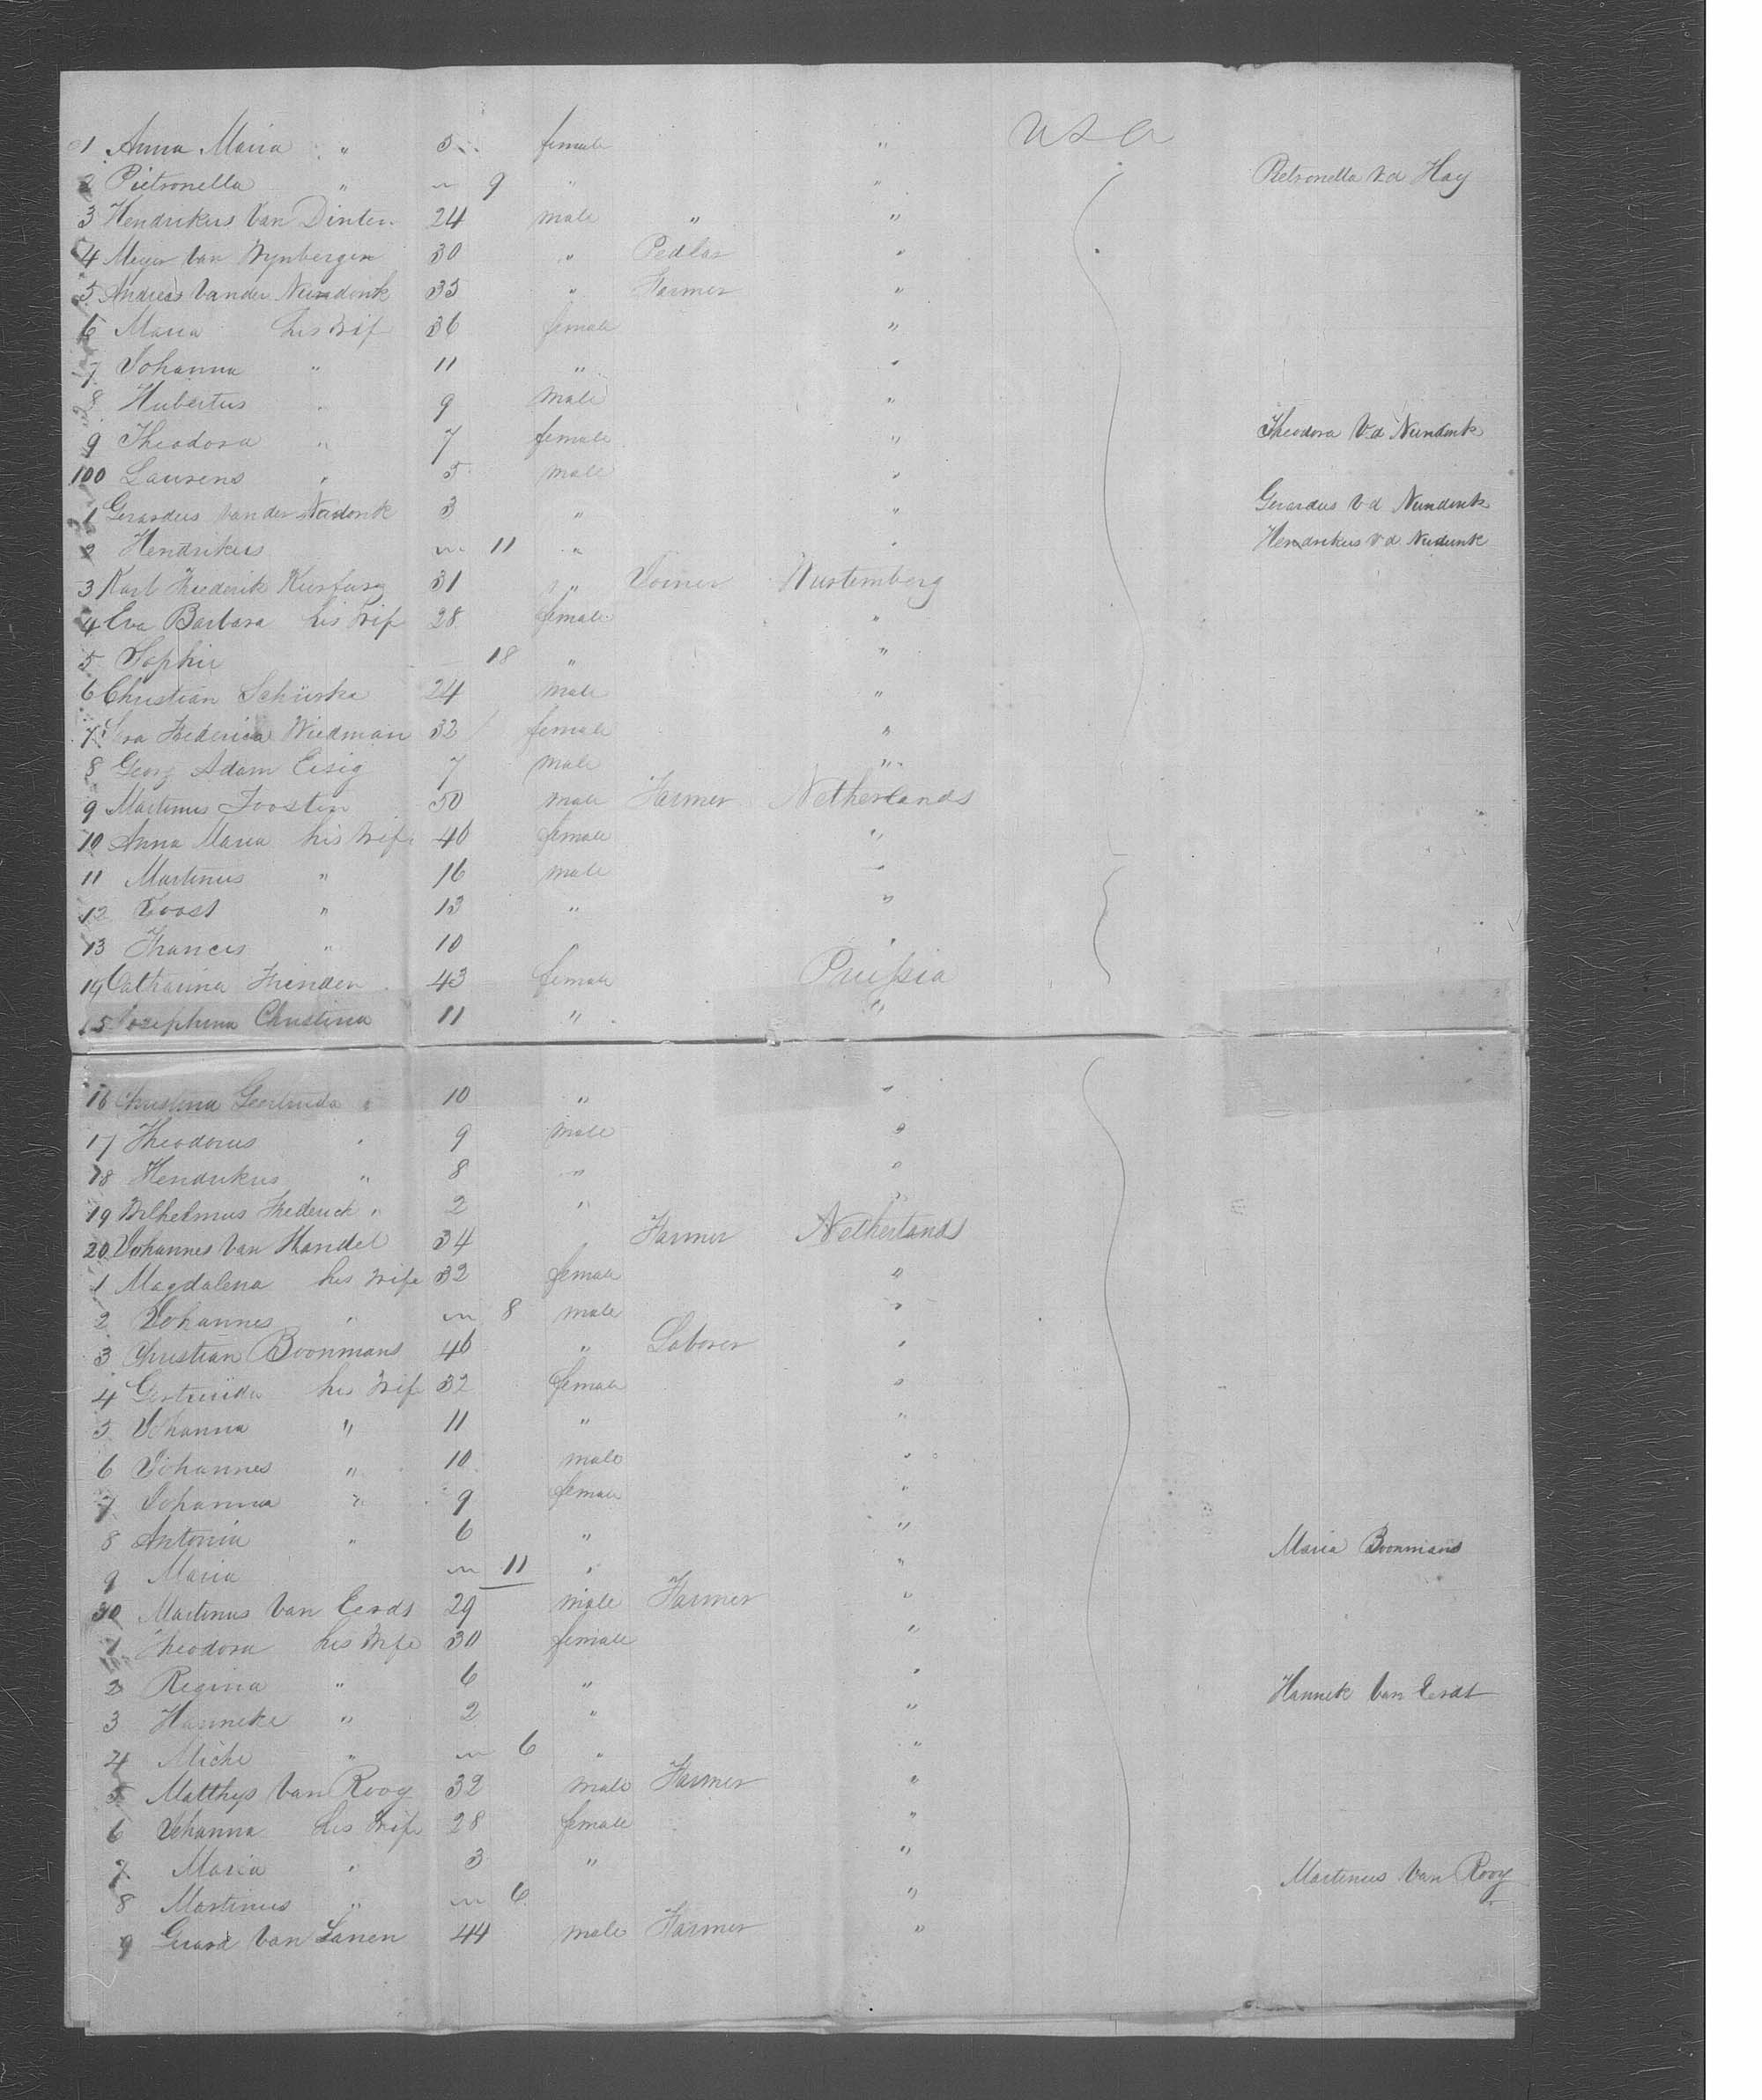 1 Anna Maria " 5 female " USA
2 Pietronella " " 9 " " Pietronella v.d Hay
3 Hendrikus Van Dinter 24 male " "
4 Meyer Van Wynbergen 30 " Pedlar "
5 Andries Vander Neindonk 35 " Farmer "
6 Maria his Wife 36 female "
7 Johanna " 11 " "
8 Hubertus " 9 male "
9 Theodora " 7 female " Theodora V.d Nundonk
100 Laurens " 5 male "
1 Gerardus van der Nundonk 3 " " Gerardus v d Nundonk
2 Hendrikus " 11 " " Hendrikus v d Nundonk
3 Karl Frederik 31 " Joiner Wurtemberg
4 Eva Barbara his Wife 28 female "
5 Sophie 18 " "
6 Christian 24 male "
7 Frederica Wiedman 32 female "
8 Georg Adam Eisig 7 male "
9 Martinus Joosten 50 male Farmer Netherlands
10 Anna Maria his Wife 46 female "
11 Martinus " 16 male "
12 Joost " 13 " "
13 Francis " 10 " "
14 Catharina 43 female Prussia
15 Josephina Christina 11 " "
16 Christina Gertruda " 10 " "
17 Theodorus " 9 male "
18 Hendrikus " 8 " "
19 Wilhelmus Frederick " 2 " "
20 Johannes Van Handel 34 " Farmer Netherlands
1 Magdalena his Wife 32 female "
2 Johannes " " 8 male "
3 Christian Boonmans 46 " Laborer "
4 Gertruida his Wife 32 female "
5 Johanna " 11 " "
6 Johannes " 10 male "
7 Johanna " 9 female "
8 Antonia " 6 " "
9 Maria " 11 " " Maria Boonmans
30 Martinus Van Eerdt 29 male Farmer "
1 Theodora his Wife 30 female "
2 Regina " 6 " "
3 Hanneke " 2 " " Hannek Van Eerdt
4 Miche " " 6 " "
5 Matthys Van Rooy 32 male Farmer "
6 Johanna his Wife 28 female "
7 Maria " 3 " "
8 Martinus " " 6 " Martinus Van Rooy
9 Gerard Van Lanen 44 male Farmer "